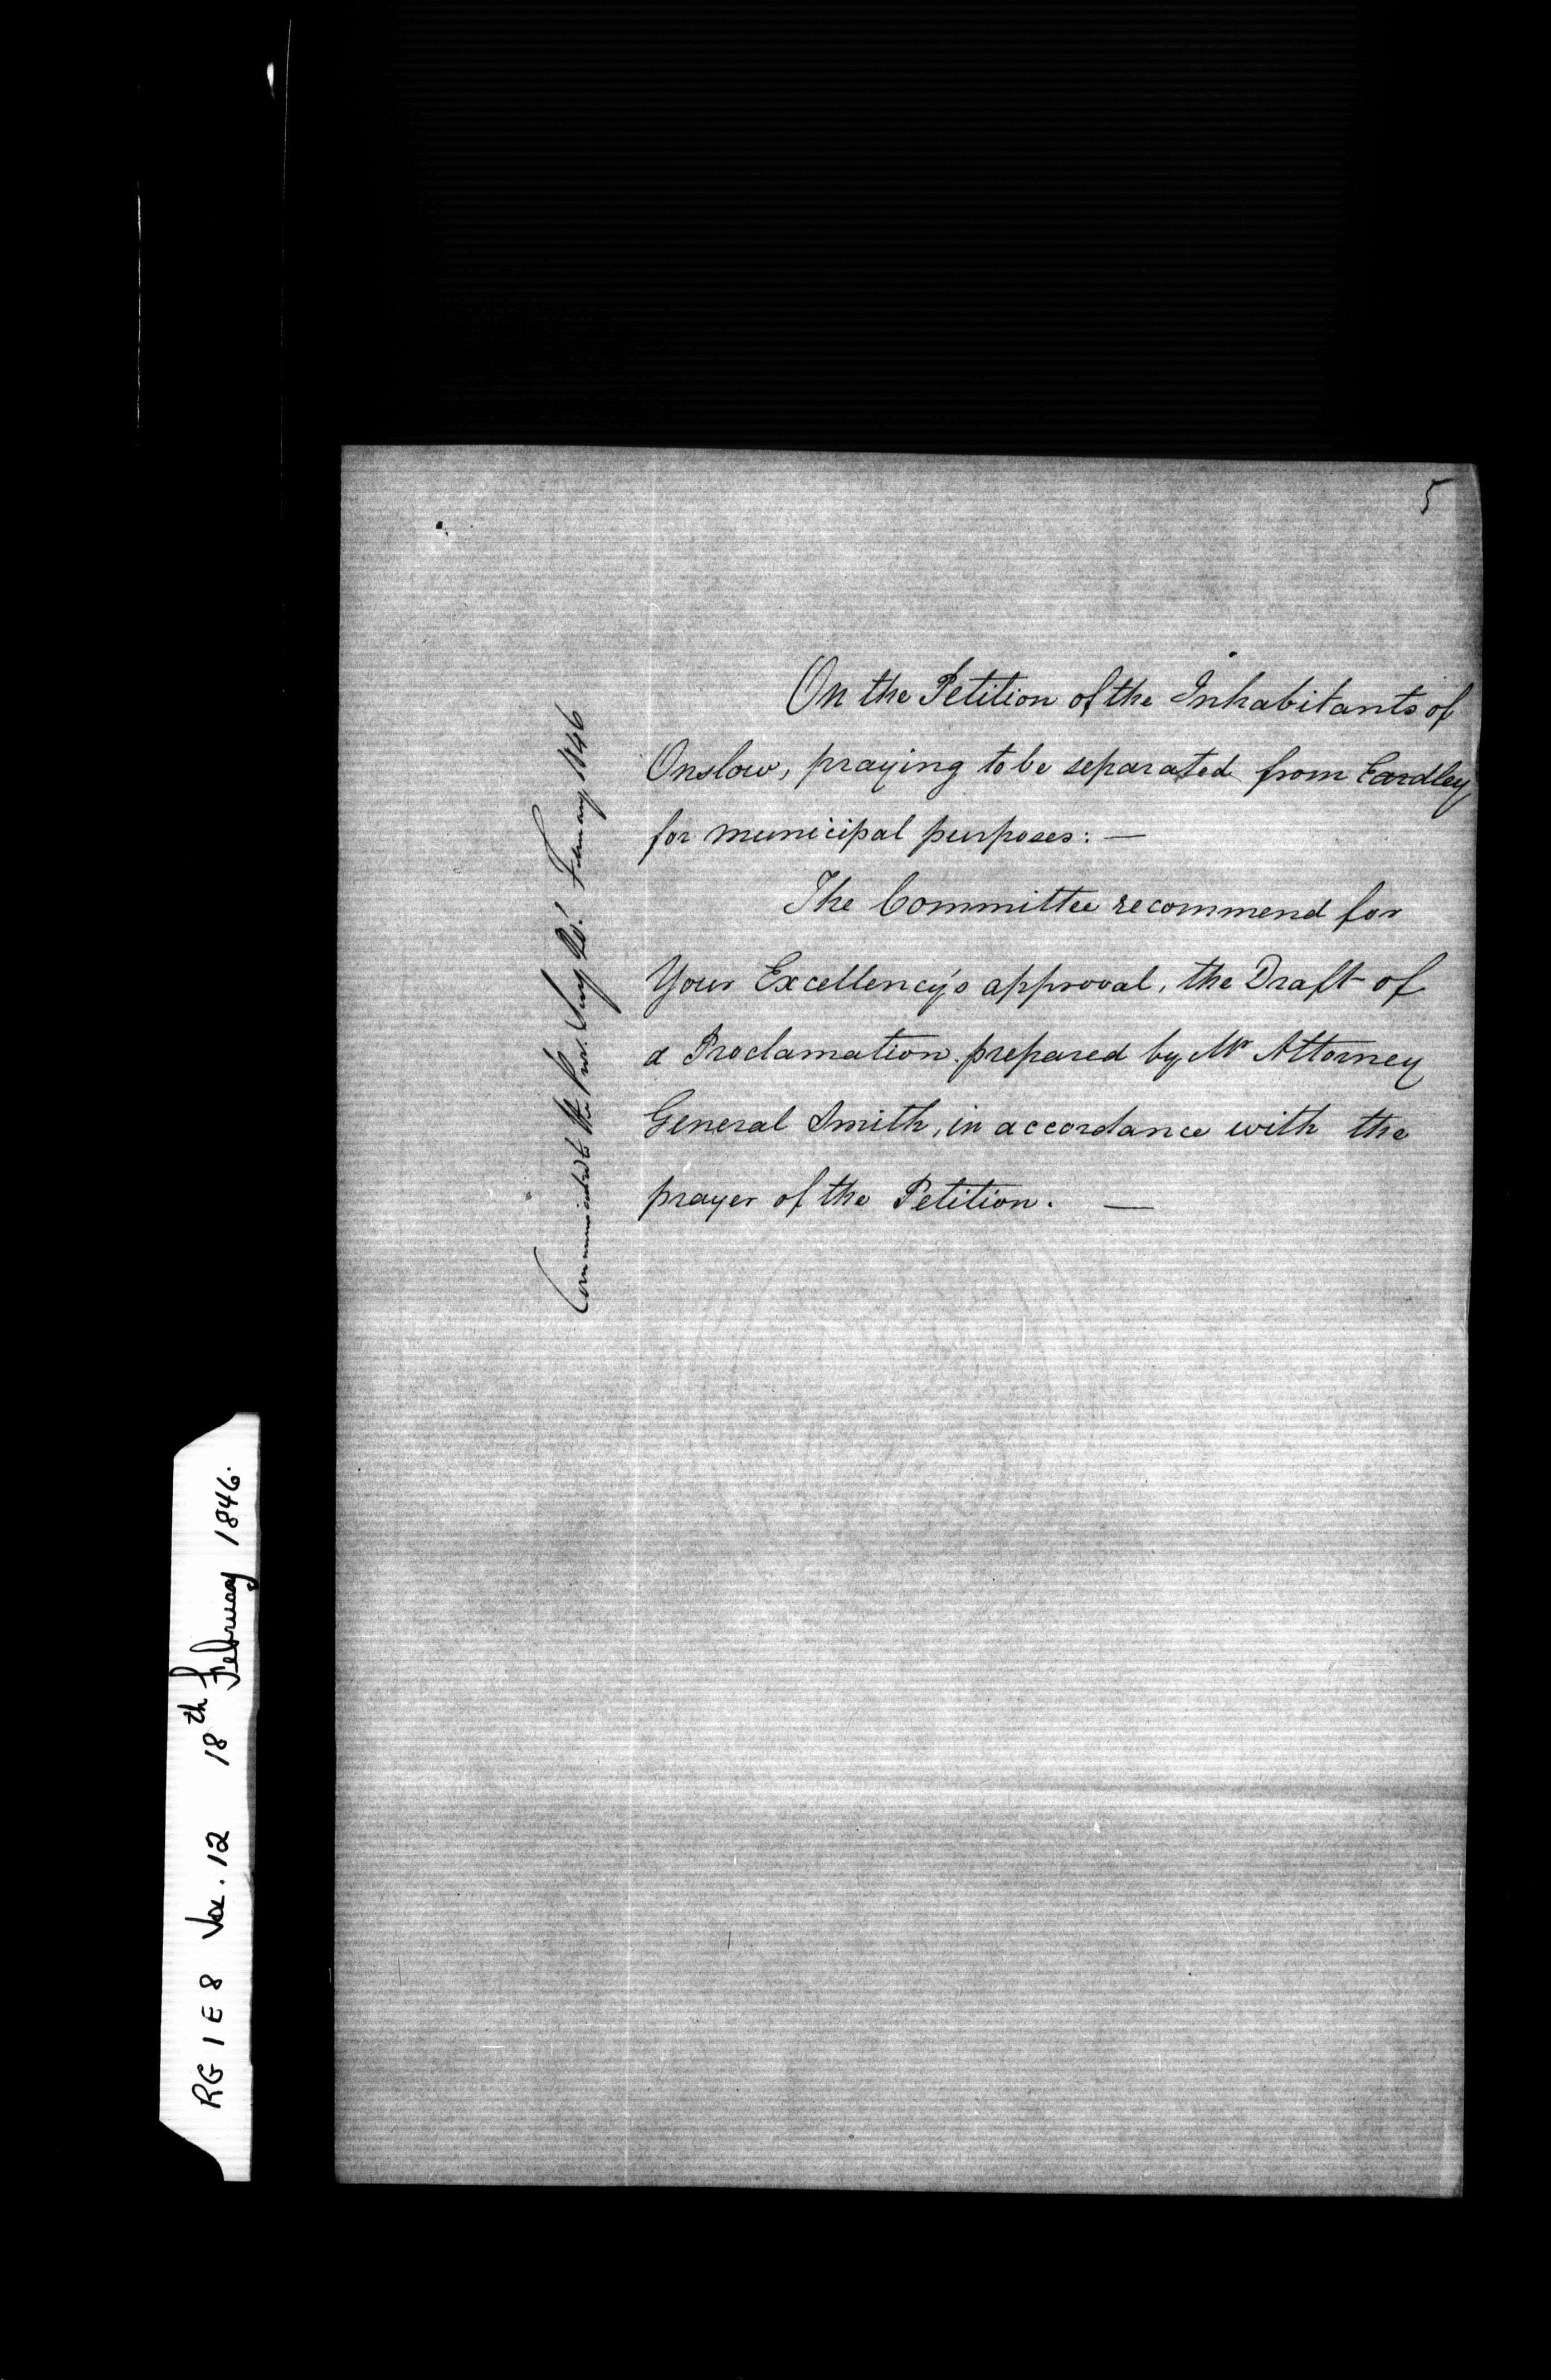 5
On the Petition of the Inhabitants of
Onslow, praying to be separated from Eardley
for municipal purposes: —
The Committee recommend for
Your Excellency's approval, the Draft of
a Proclamation prepared by Mr Attorney
General Smith, in accordance with the
prayer of the Petition. —
Communicated to the Prov. Secy February 1846
RG 1 E 8 Vol. 12 18th February 1846.